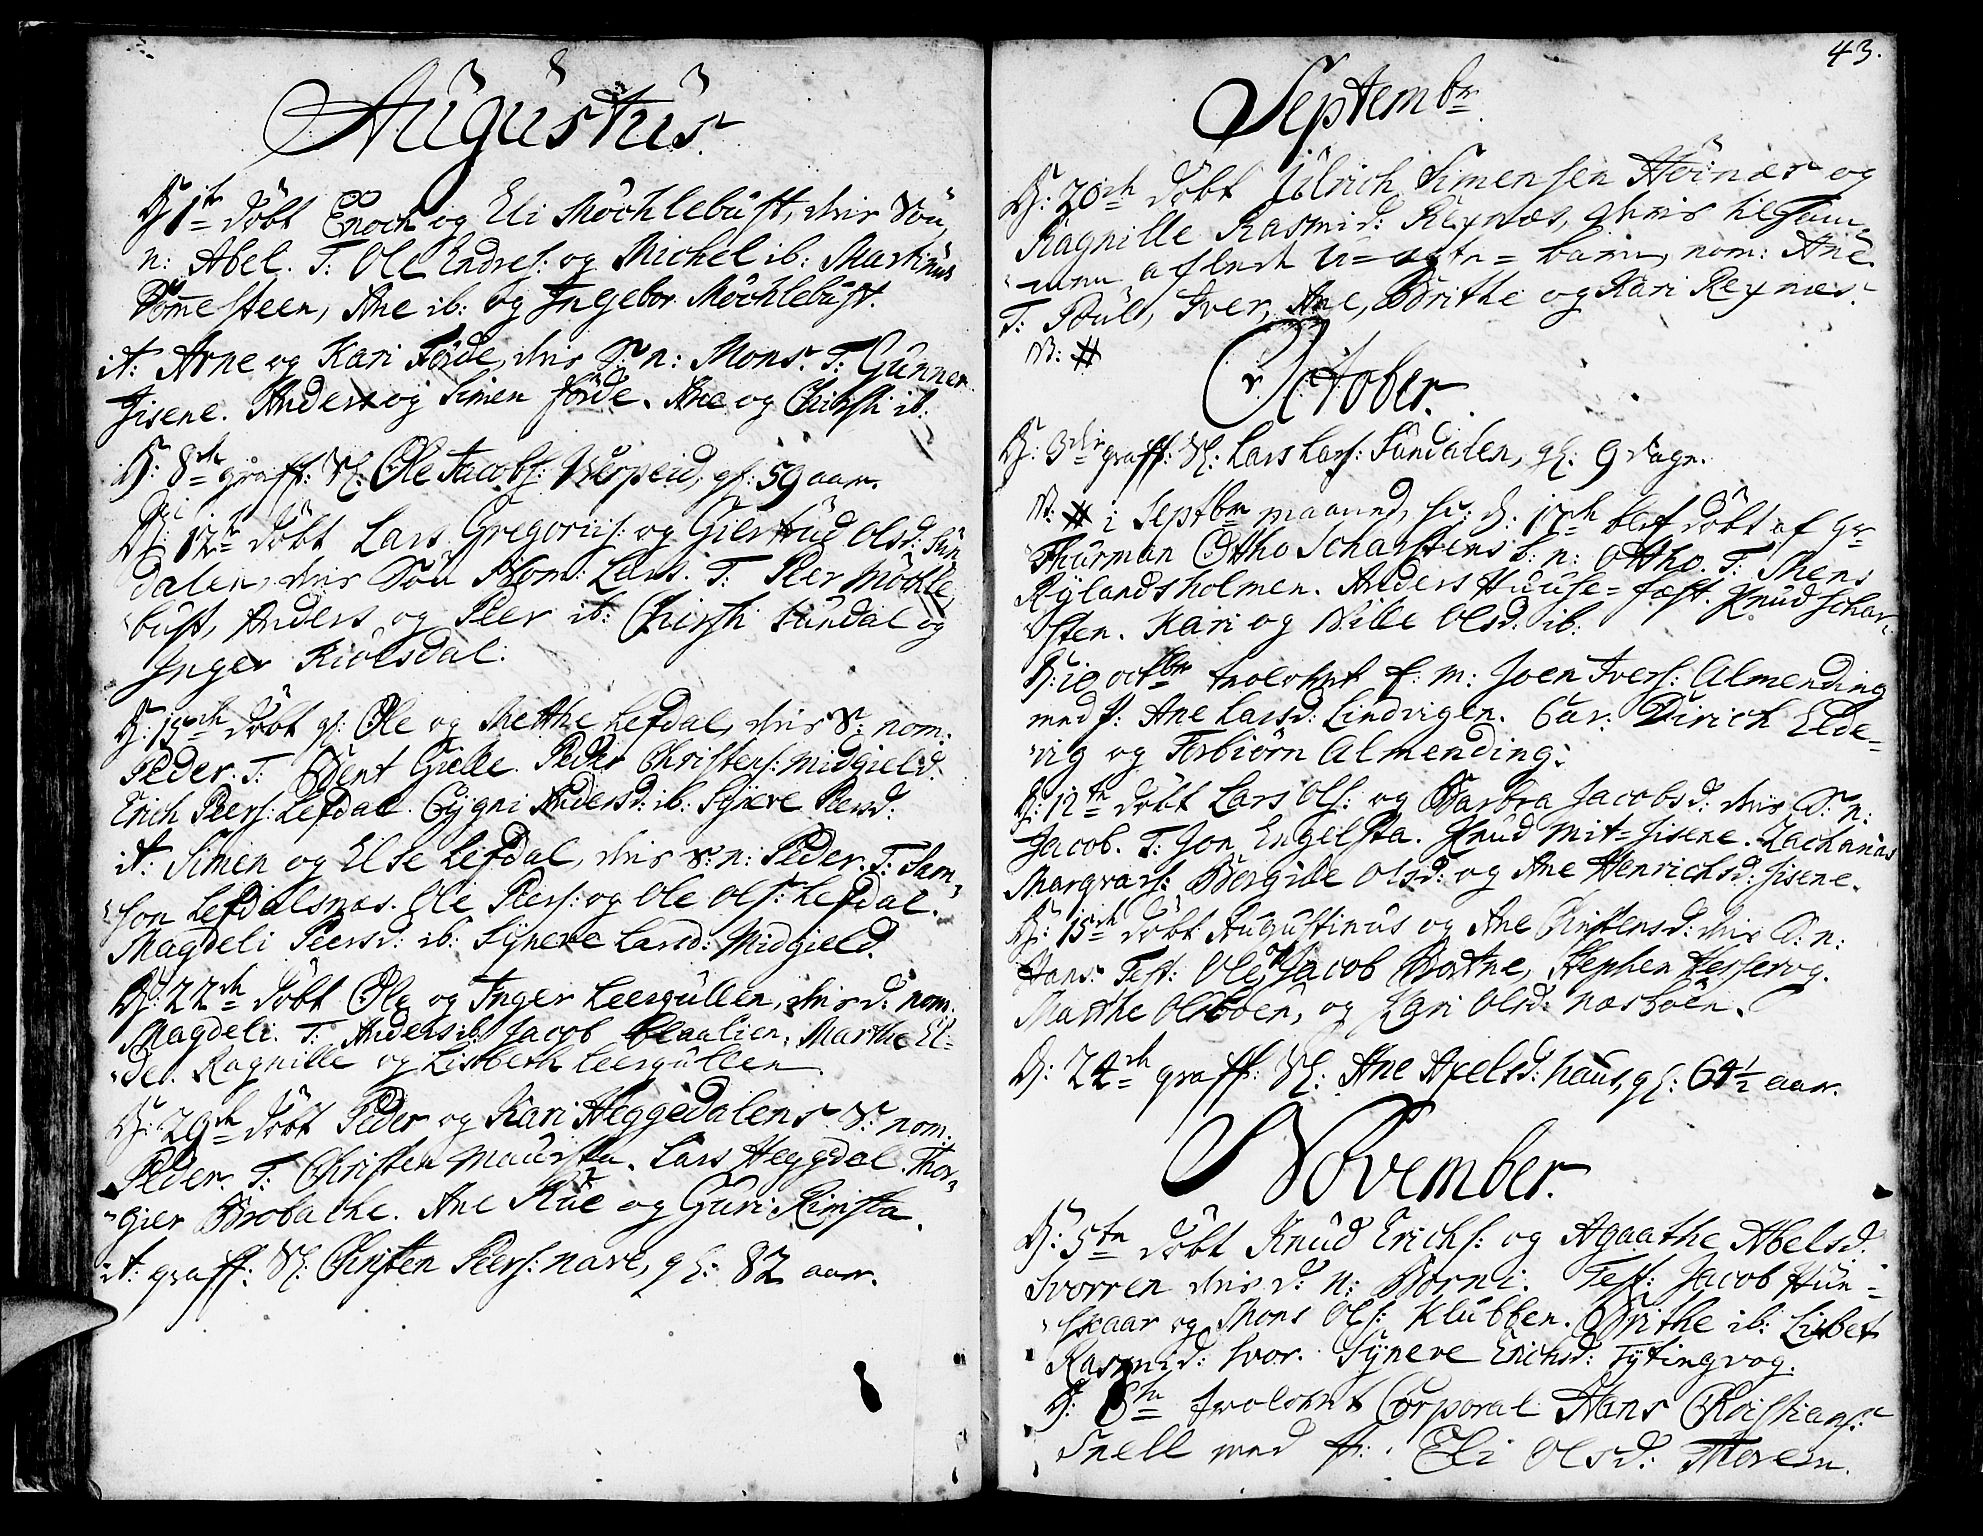 Augustus
D: 1te döbt Enoch og Eli Möchlebust, deris Sön
n: Abel. T: Ole Endres: og Michel ib: Martinus
Tomesteen, Ane ib: og Ingebor Möchlebust.
it: Arne og Kari Förde, deris S: n: Mons. T: Gunner
Jisene. Anders og Simen förde. Ane og Chirsti ib:
D: 8de graff: Sl: Ole Jacobs: Verpeid, gl: 59 aar.
D: 12te döbt Lars Gregorius: og Giertrud Olsd: Sun
dalen, deris Sön Nom: Lars. T: Peer Möchle
bust, Anders og Peer ib: Chirsti Sundal og
Inger Riölsdal.
D: 15de döbt gl: Ole og Mette Lefdal, deris S: nom:
Peder. T: Bent Gielle. Peder Christens: Midgield.
Erich Peers: Lefdal. Gygni Andersd: ib: Synere Peersd:
it: Simen og Else Lefdal, deris S: n: Peder. T: Sam-
son Lefdalsnæs. Ole Peers: og Ole Ols: Lefdal.
Magdeli Peersd: ib: Synere Larsd: Midgield.
D: 22de döbt Ole og Inger Leergullen, deris d: nom:
Magdeli. T: Anders ib: Jacob Blaalien, Marthe El-
de. Ragnille og Lisbeth Leergullen
D: 29de döbt Peder og Kari Heggedalens S: nom:
Peder. T: Christen Maursta. Lars Heggdal. Thor-
gier Brobakke. Ane Rue og Guri Rimsta.
it: graff: Sl: Christen Peers: Nave, gl: 82 aar.
43.
Septembr
D: 20de döbt Ulrich Simensen Höinæs og
Ragnille Rasmid: Reynæs, deris tilsam-
men aflede U-ægte-barn, nom: Ane.
T: Poul, Iver, Ane, Brithe og Kari Reynæs.
N: #
October.
D: 3die graff: Sl: Lars Lars: Sundalen, gl: 9 dage.
N: # i Septbr maaned, sc: d: 17de blef döbt af Hr
Thurman Otho Scharstens S: n: Ottho. T: Mons
Rylandsholmen. Anders Huuse-fæst. Knud Schar-
sten. Kari og Nille Olsd: ib:
D: 10 octbr trolovet s: m: Joen Ivers: Almending
med p: Ane Larsd: Lindvigen. Cav: Dirich Elde-
vig og Torbiörn Almending.
D: 12te döbt Lars Ols: og Barbra Jacobsd: deris S: n:
Jacob. T: Jon Engelsta. Knud Mit-Jisene. Zacharias
Margvars: Bergille Olsd: og Ane Henrichsd: Jisene.
D: 15de döbt Augustinus og Ane Christensd: deris S: n:
Hans. Test: Ole, Jacob Bortne, Stephen Hessevog.
Marthe Olsboen, og Kari Olsd: næsboen.
D: 24de graff: Sl: Ane Axelsd: haus, gl: 64½ aar.
November.
D: 5te döbt Knud Erichs: og Agaathe Abelsd:
Svorren deris d: n: Borni. Test: Jacob Hun-
skaar og Mons Ols: Klubben. Brithe ib: Lisbet
Rasmid: Svor. Synere Erichsd: Tytingvog.
D: 6te trolovet Corporal Hans Christians:
Snell med p: Eli Olsd: Moren.